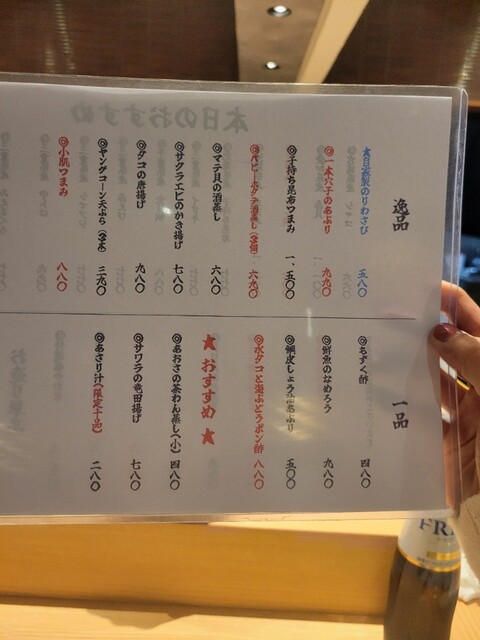 逸品
大昌謹製のりわさび 五八〇
◎一本穴子のあぶり 九九〇
◎子持ち昆布つまみ 一、五〇〇
◎ベビーホタテ酒蒸し 六九〇
◎マテ貝の酒蒸し 六八〇
◎サクラエビのかき揚げ 七八〇
◎タコの唐揚げ 九八〇
◎ヤングコーン天ぷら 三九〇
◎小肌つまみ 八八〇
一品
◎もずく酢 四八〇
◎鮮魚のなめろう 九八〇
◎鯛皮しょうが 五〇〇
◎水ダコと海ぶどうポン酢 八八〇
★おすすめ★
◎あおさの茶わん蒸し(小) 四八〇
◎サワラの竜田揚げ 七八〇
◎あさり汁(限定十品) 二八〇
本日のおすすめ
FR